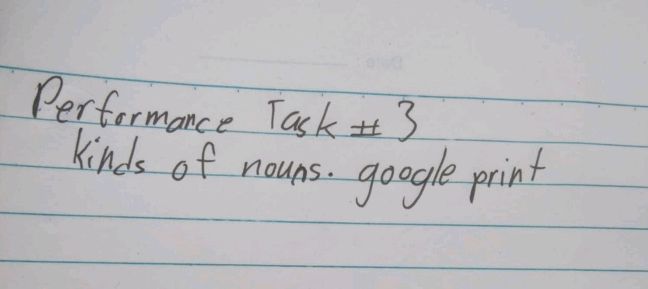 Performance Task # 3
Kinds of nouns. google print